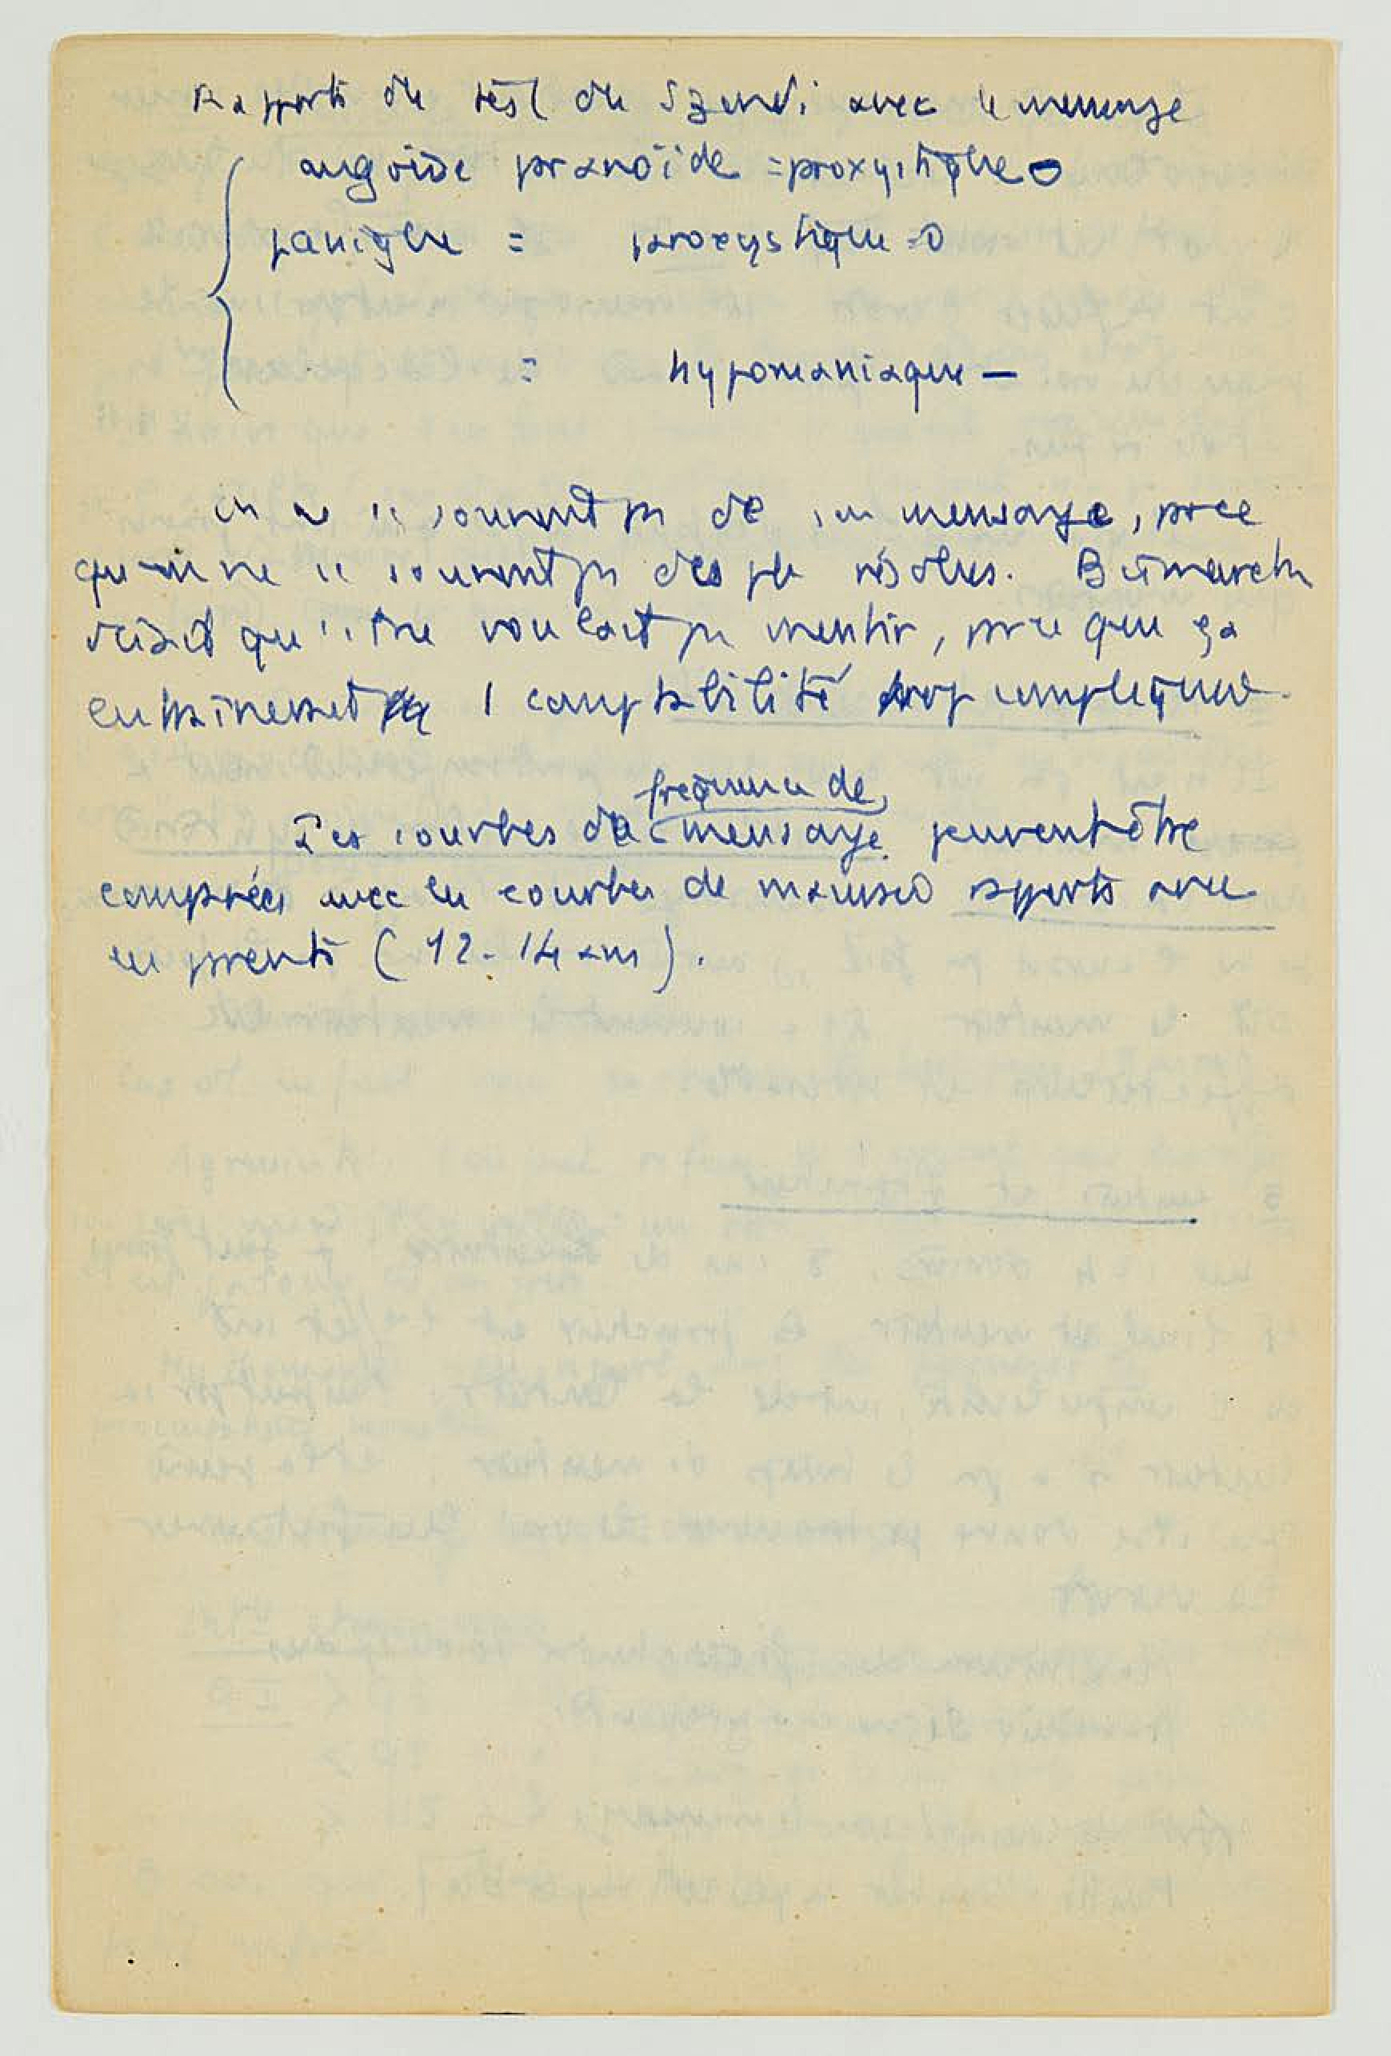 Rapports du test du Szondi avec le mensonge
angoisse paranoïde = paroxystique -
panique = paroxystique = 0
= hypomaniaque —
on ne se souvient pas de son mensonge, parce
qu'on ne se souvient pas des pb résolus. Bismarck
disait qu'il ne voulait pas mentir, parce que ça
entrainerait 1 comptabilité trop compliquée.
Les courbes de fréquence de mensonge peuvent être
comparées avec les courbes de mauvais rapports avec
les parents (12-14 ans).